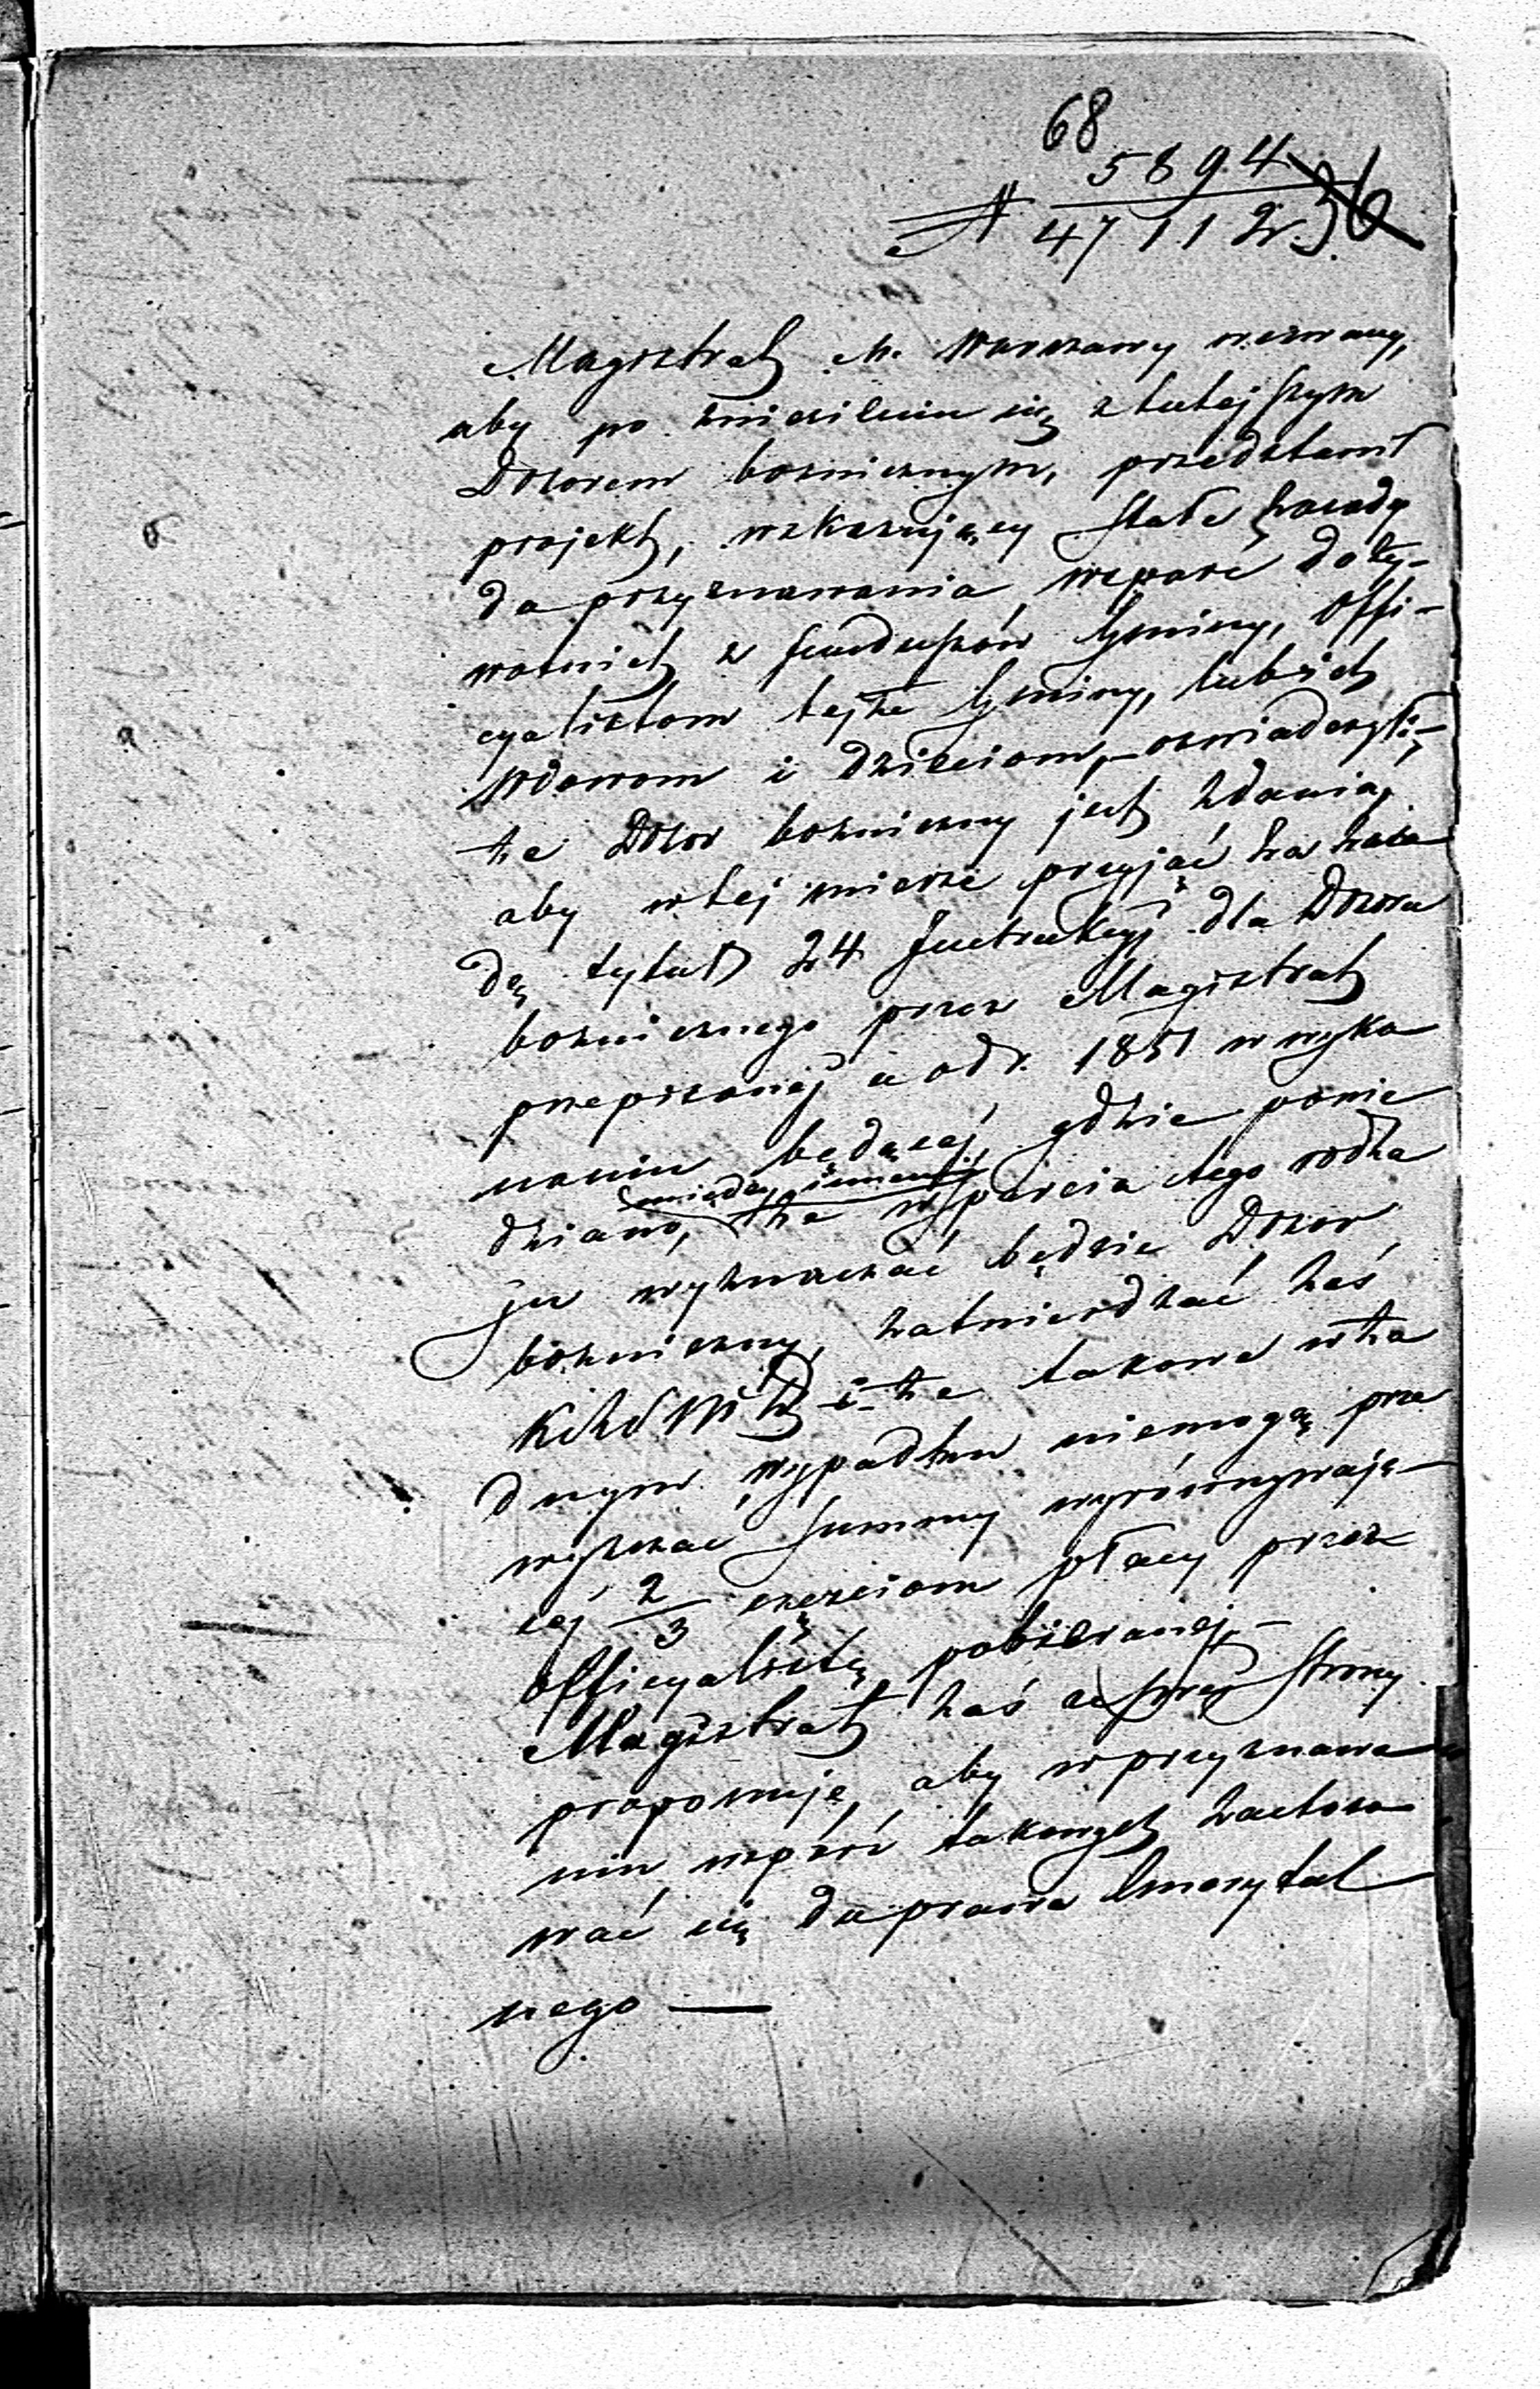 68
5894 36
N 47112
Magistrat M. Warszawy wezwany,
aby po zniesieniu się z tutejszym
Dozorem bożniczym, przedstawił
projekt, wskazujący stałe zasady
do przyznawania wsparć doży-
wotnich z funduszów Gminy, Offi-
cyalistom tejże Gminy, lub ich
wdowom i dzieciom, – oświadczył: –
że Dozór bożniczny jest zdania,
aby w tej mierze przyjąć za zasa
dę tytuł 24 Instrukcyi dla Dozoru
bożnicznego przez Magistrat
przepisanej a od r. 1851 w wyko
naniu będącej, gdzie powie
dziano, między innemi
że wsparcia tego rodza
ju wyznaczać będzie Dozór
bożniczny, zatwierdzać zaś
i że takowe w ża
dnym wypadku niemogą prze
wyższać summy wyrównywają-
cej 2/3 częściom płacy przez
officyalistę pobieranej. –
Magistrat zaś ze swej strony
proponuje, aby w przyznawa
niu wsparć takowych zastoso
wać się do prawa Emerytal
nego —